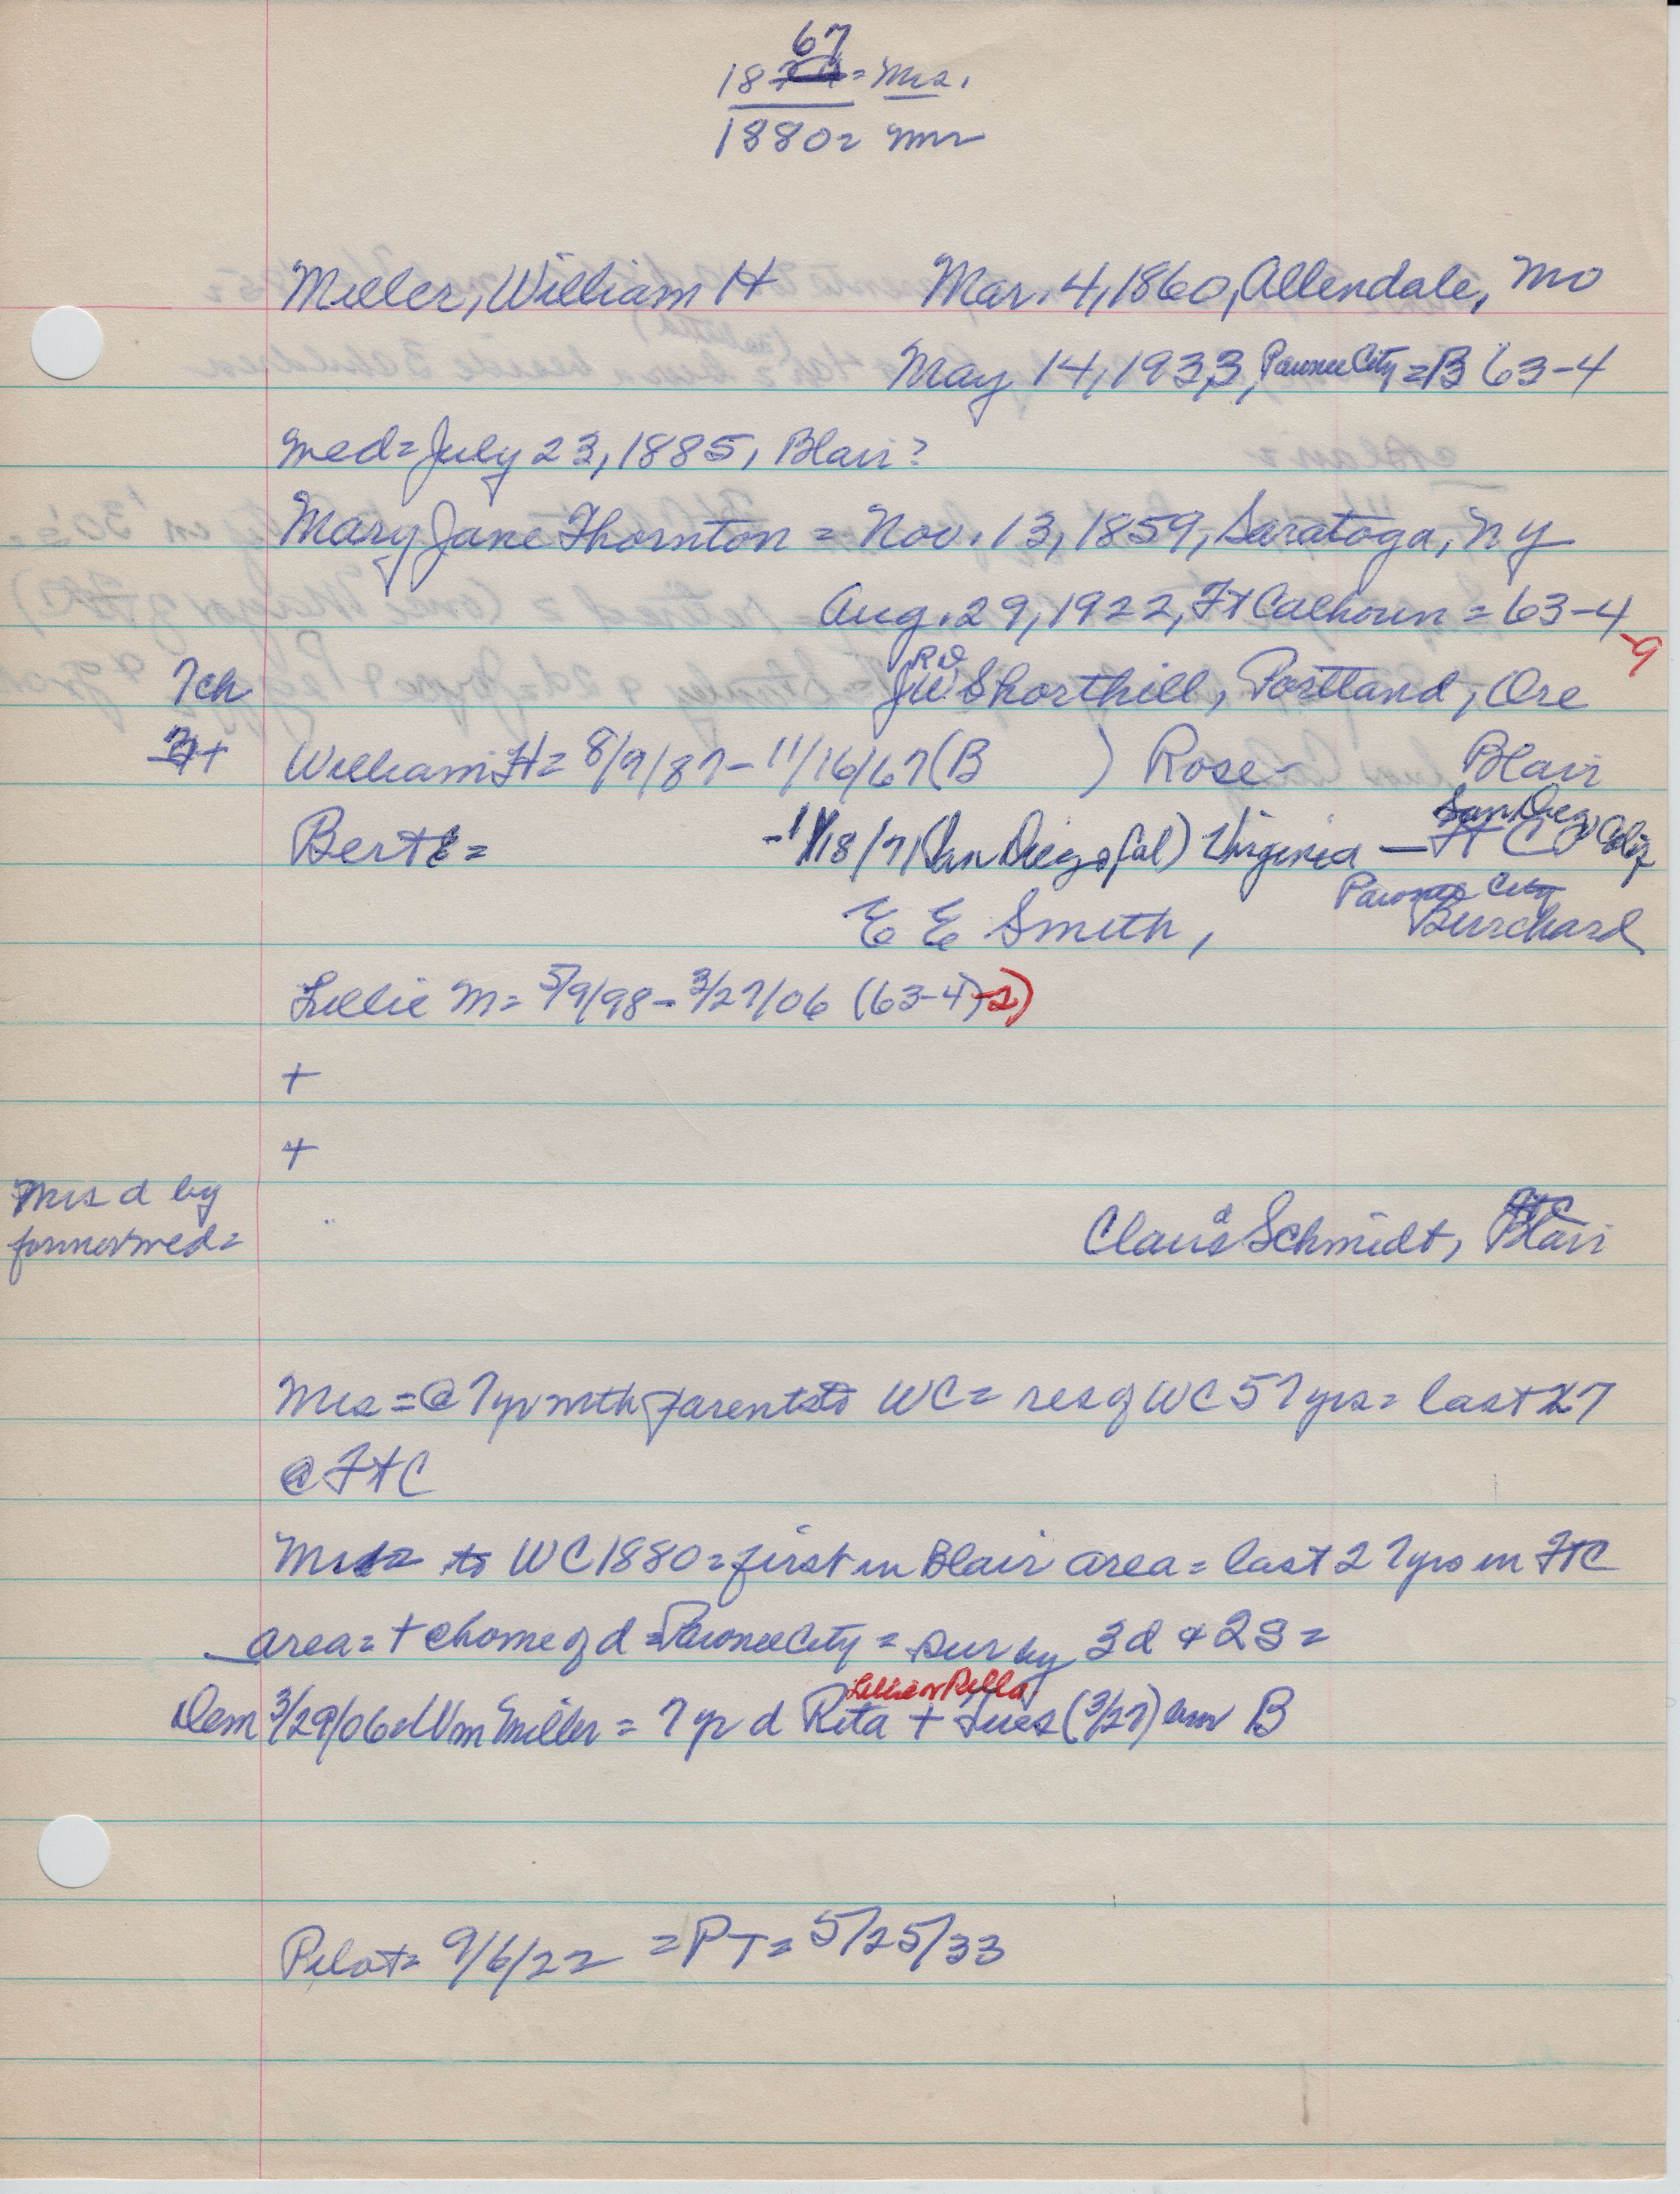 67
18 = Mrs.
1880 = Mr
Miller, William H Mar. 4, 1860, Allendale, Mo
May 14, 1933, Pawnee City = B 63-4
med = July 23, 1885, Blair?
Mary Jane Thornton = Nov. 13, 1859, Saratoga, NY
Aug. 29, 1922, Ft Calhoun = 63-4
-9
7ch JW Shorthill, Portland, Ore
William H = 8/9/87 - 11/16/67 (B ) Rose - Blair
San Diego Calif
Bert = 18/71 (San Diego, Cal) Virginia - Ft C
Pawnee City
E E Smith, Burchard
Lillie M = 5/9/98 - 3/27/06 (63-4)-2)
+
+
Mrs d by
former med =
Claus Schmidt, Blair
Mrs = @ 7 yr with parents to WC = res of WC 57 yrs = last 27
@ Ft C
Mr = to WC 1880 = first in Blair area = last 27 yrs in Ft C
area = + @ home of d = Pawnee City = sur by 3d & 2s =
Lillie or Rella
Dem 3/29/06 = Wm Miller = 7 yr d Rita + Tues (3/27) bur B
Pilot = 9/6/22 = PT = 5/25/33